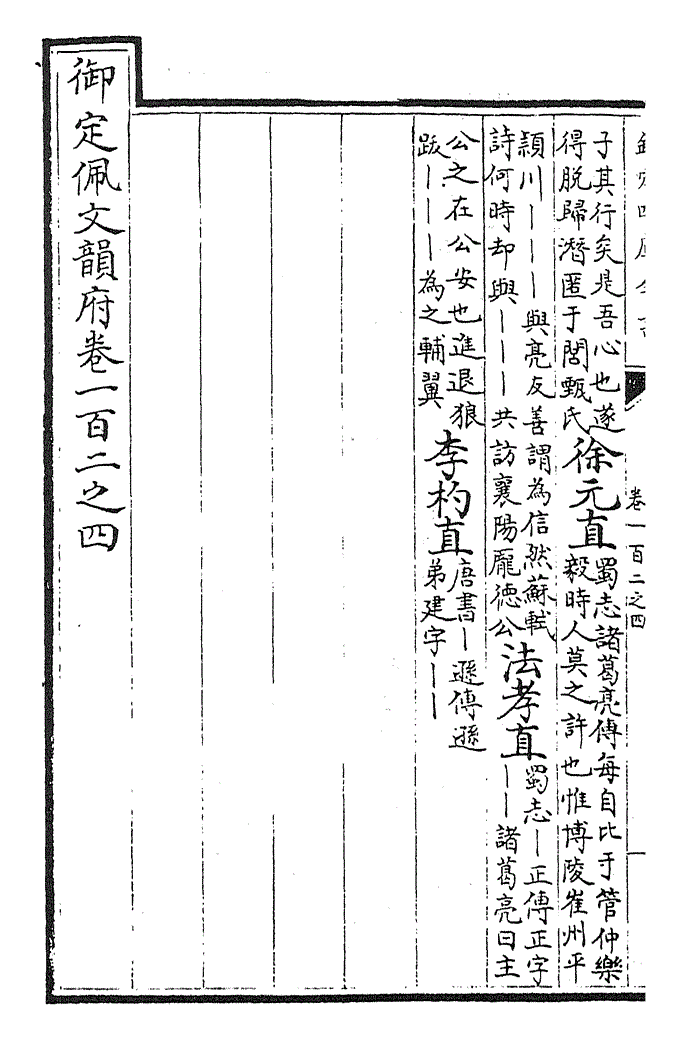 欽定四庫全書
卷一百二之四
子其行矣是吾心也遂
得脱歸潛匿于閻甄氏
徐元直
蜀志諸葛亮傳每自比于管仲樂
毅時人莫之許也惟博陵崔州平
頴川｜｜｜與亮友善謂為信然蘇軾
詩何時却與｜｜｜共訪襄陽龎徳公
法孝直
蜀志｜正傳正字
｜｜諸葛亮曰主
公之在公安也進退狼
跋｜｜｜為之輔翼
李杓直
唐書｜遜傳遜
弟建字｜｜
御定佩文韻府卷一百二之四